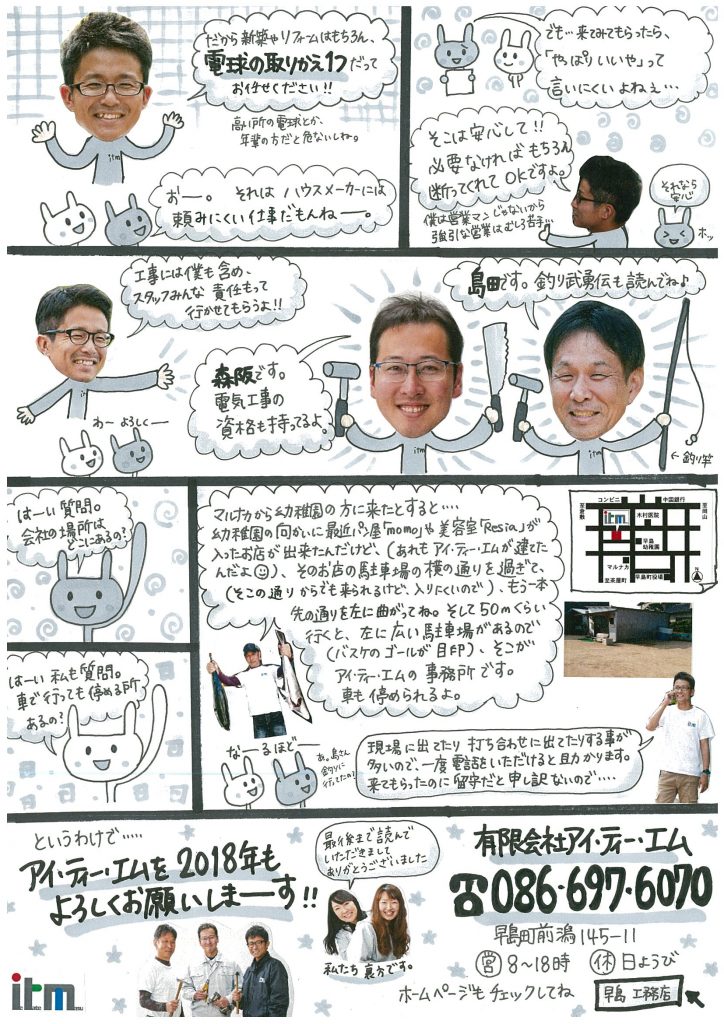 だから新築やリフォームはもちろん、
電球の取りかえ1つだって
お任せください!!
高い所の電球とか、
年輩の方だと危ないしね。
itm
おー。それはハウスメーカーには
頼みにくい仕事だもんねー。
でも…来てみてもらったら、
「やっぱりいいや」って
言いにくいよねぇ…
そこは安心して!!
必要なければもちろん
断ってくれてOKですよ。
僕は営業マンじゃないから
強引な営業はむしろ苦手…
それなら
安心
ホッ
工事には僕も含め、
スタッフみんな責任もって
行かせてもらうよ!!
わ〜よろしく〜
森阪です。
電気工事の
資格も持ってるよ。
itm
島田です。釣り武勇伝も読んでね♪
itm
←釣り竿
はーい質問。
会社の場所は
どこにあるの?
はーい私も質問。
車で行っても停める所
あるの?
マルナカから幼稚園の方に来たとすると….
幼稚園の向かいに最近パン屋「momo」や美容室「Resia」が
入ったお店が出来たんだけど、(あれもアイ・ティー・エムが建てた
んだよ)、そのお店の駐車場の横の通りを過ぎて、
(そこの通りからでも来られるけど、入りにくいので)、もう一本
先の通りを左に曲がってね。そして50mくらい
行くと、左に広い駐車場があるので
(バスケのゴールが目印)、そこが
アイ・ティー・エムの事務所です。
車も停められるよ。
コンビニ
中国銀行
至倉敷
至岡山
itm
木村医院
早島
幼稚園
マルナカ
至茶屋町
早島町役場
N
な〜るほど〜
あ。島さん
釣りに
行ってたの?
現場に出てたり打ち合わせに出てたりする事が
多いので、一度電話をいただけると助かります。
来てもらったのに留守だと申し訳ないので….
というわけで…..
アイ・ティー・エムを2018年も
よろしくお願いしまーす!!
itm
最後まで読んで
いただきまして
ありがとうございました
私たち裏方です。
有限会社アイ・ティー・エム
☎086・697・6070
早島町前潟145-11
営 8〜18時 休 日ようび
ホームページもチェックしてね 早島 工務店